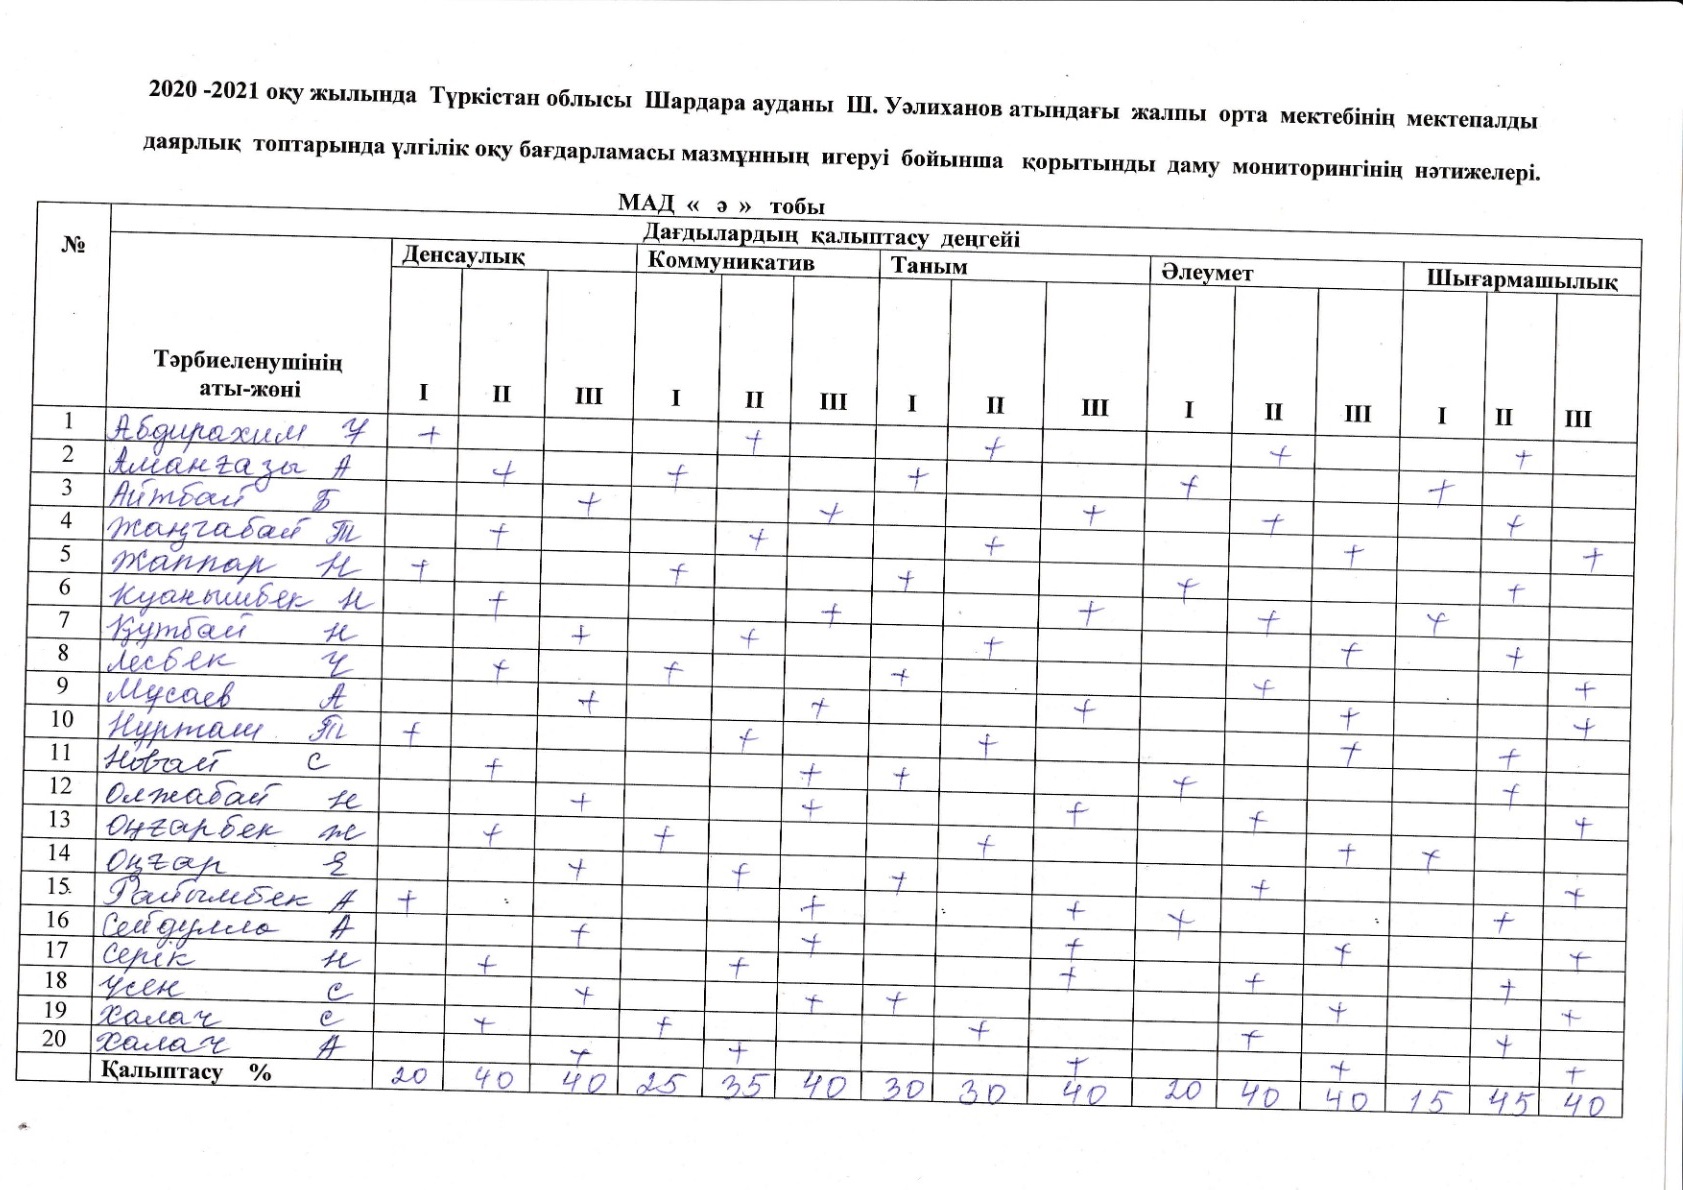 2020 -2021 оқу жылында Түркістан облысы Шардара ауданы Ш. Уәлиханов атындағы жалпы орта мектебінің мектепалды
даярлық топтарында үлгілік оқу бағдарламасы мазмұнның игеруі бойынша қорытынды даму мониторингінің нәтижелері.
МАД « ә » тобы
№ Дағдылардың қалыптасу деңгейі
Денсаулық Коммуникатив Таным Әлеумет Шығармашылық
Тәрбиеленушінің
аты-жөні I II III I II III I II III I II III I II III
1 Абдирахим У + + + + +
2 Аманғазы А + + + + +
3 Айтбай Б + + + + +
4 Жаңғабай Т + + + + +
5 Жаппар Н + + + + +
6 Куанышбек Н + + + + +
7 Құтбай Н + + + + +
8 Лесбек У + + + + +
9 Мусаев А + + + + +
10 Нурташ Т + + + + +
11 Новай С + + + + +
12 Олжабай Н + + + + +
13 Оңғарбек Ж + + + + +
14 Оңғар Е + + + + +
15 Райымбек А + + + + +
16 Сейдулла А + + + + +
17 Серік Н + + + + +
18 Үсен С + + + + +
19 Халач С + + + + +
20 Халач А + + + + +
Қалыптасу % 20 40 40 25 35 40 30 30 40 20 40 40 15 45 40